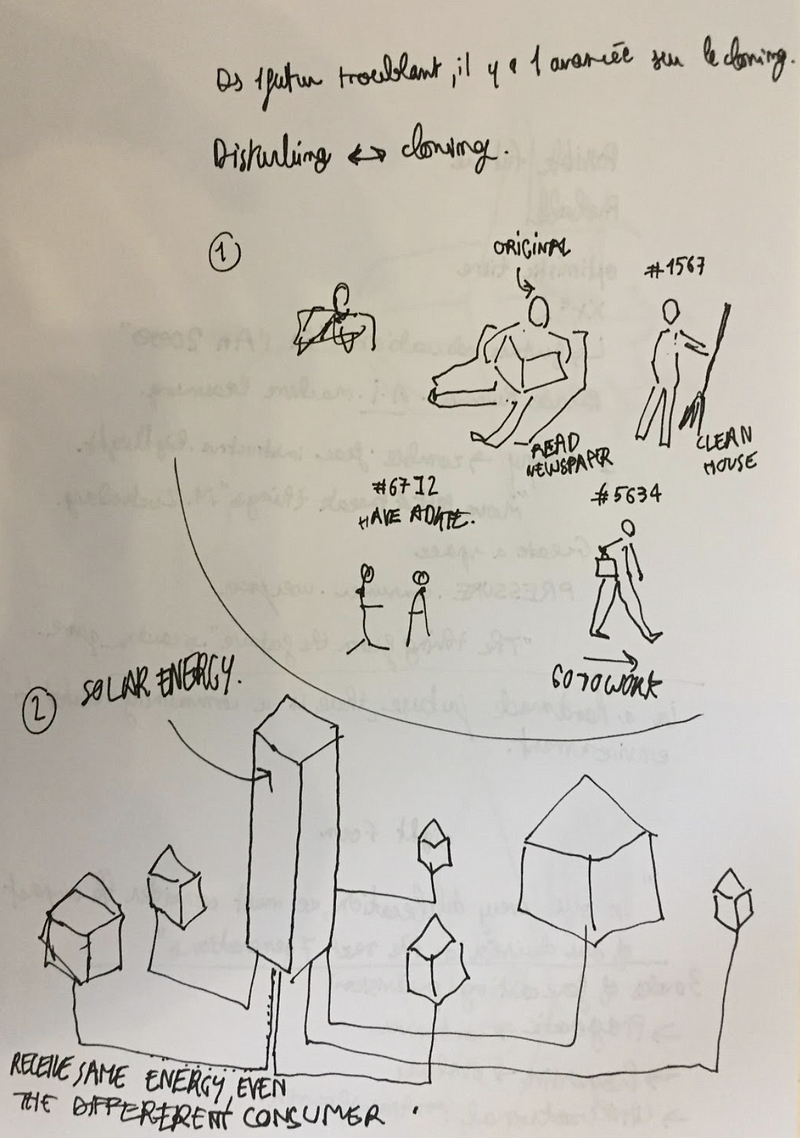 Ds 1 futur troublant, il y a 1 avancée sur le cloning.
Disturbing ↔ cloning.
1
ORIGINAL
#1567
READ
NEWSPAPER
CLEAN
HOUSE
#6712
HAVE A DATE.
#5634
GO TO WORK
2
SOLAR ENERGY.
RECEIVE SAME ENERGY, EVEN
THE DIFFERERENT CONSUMER.